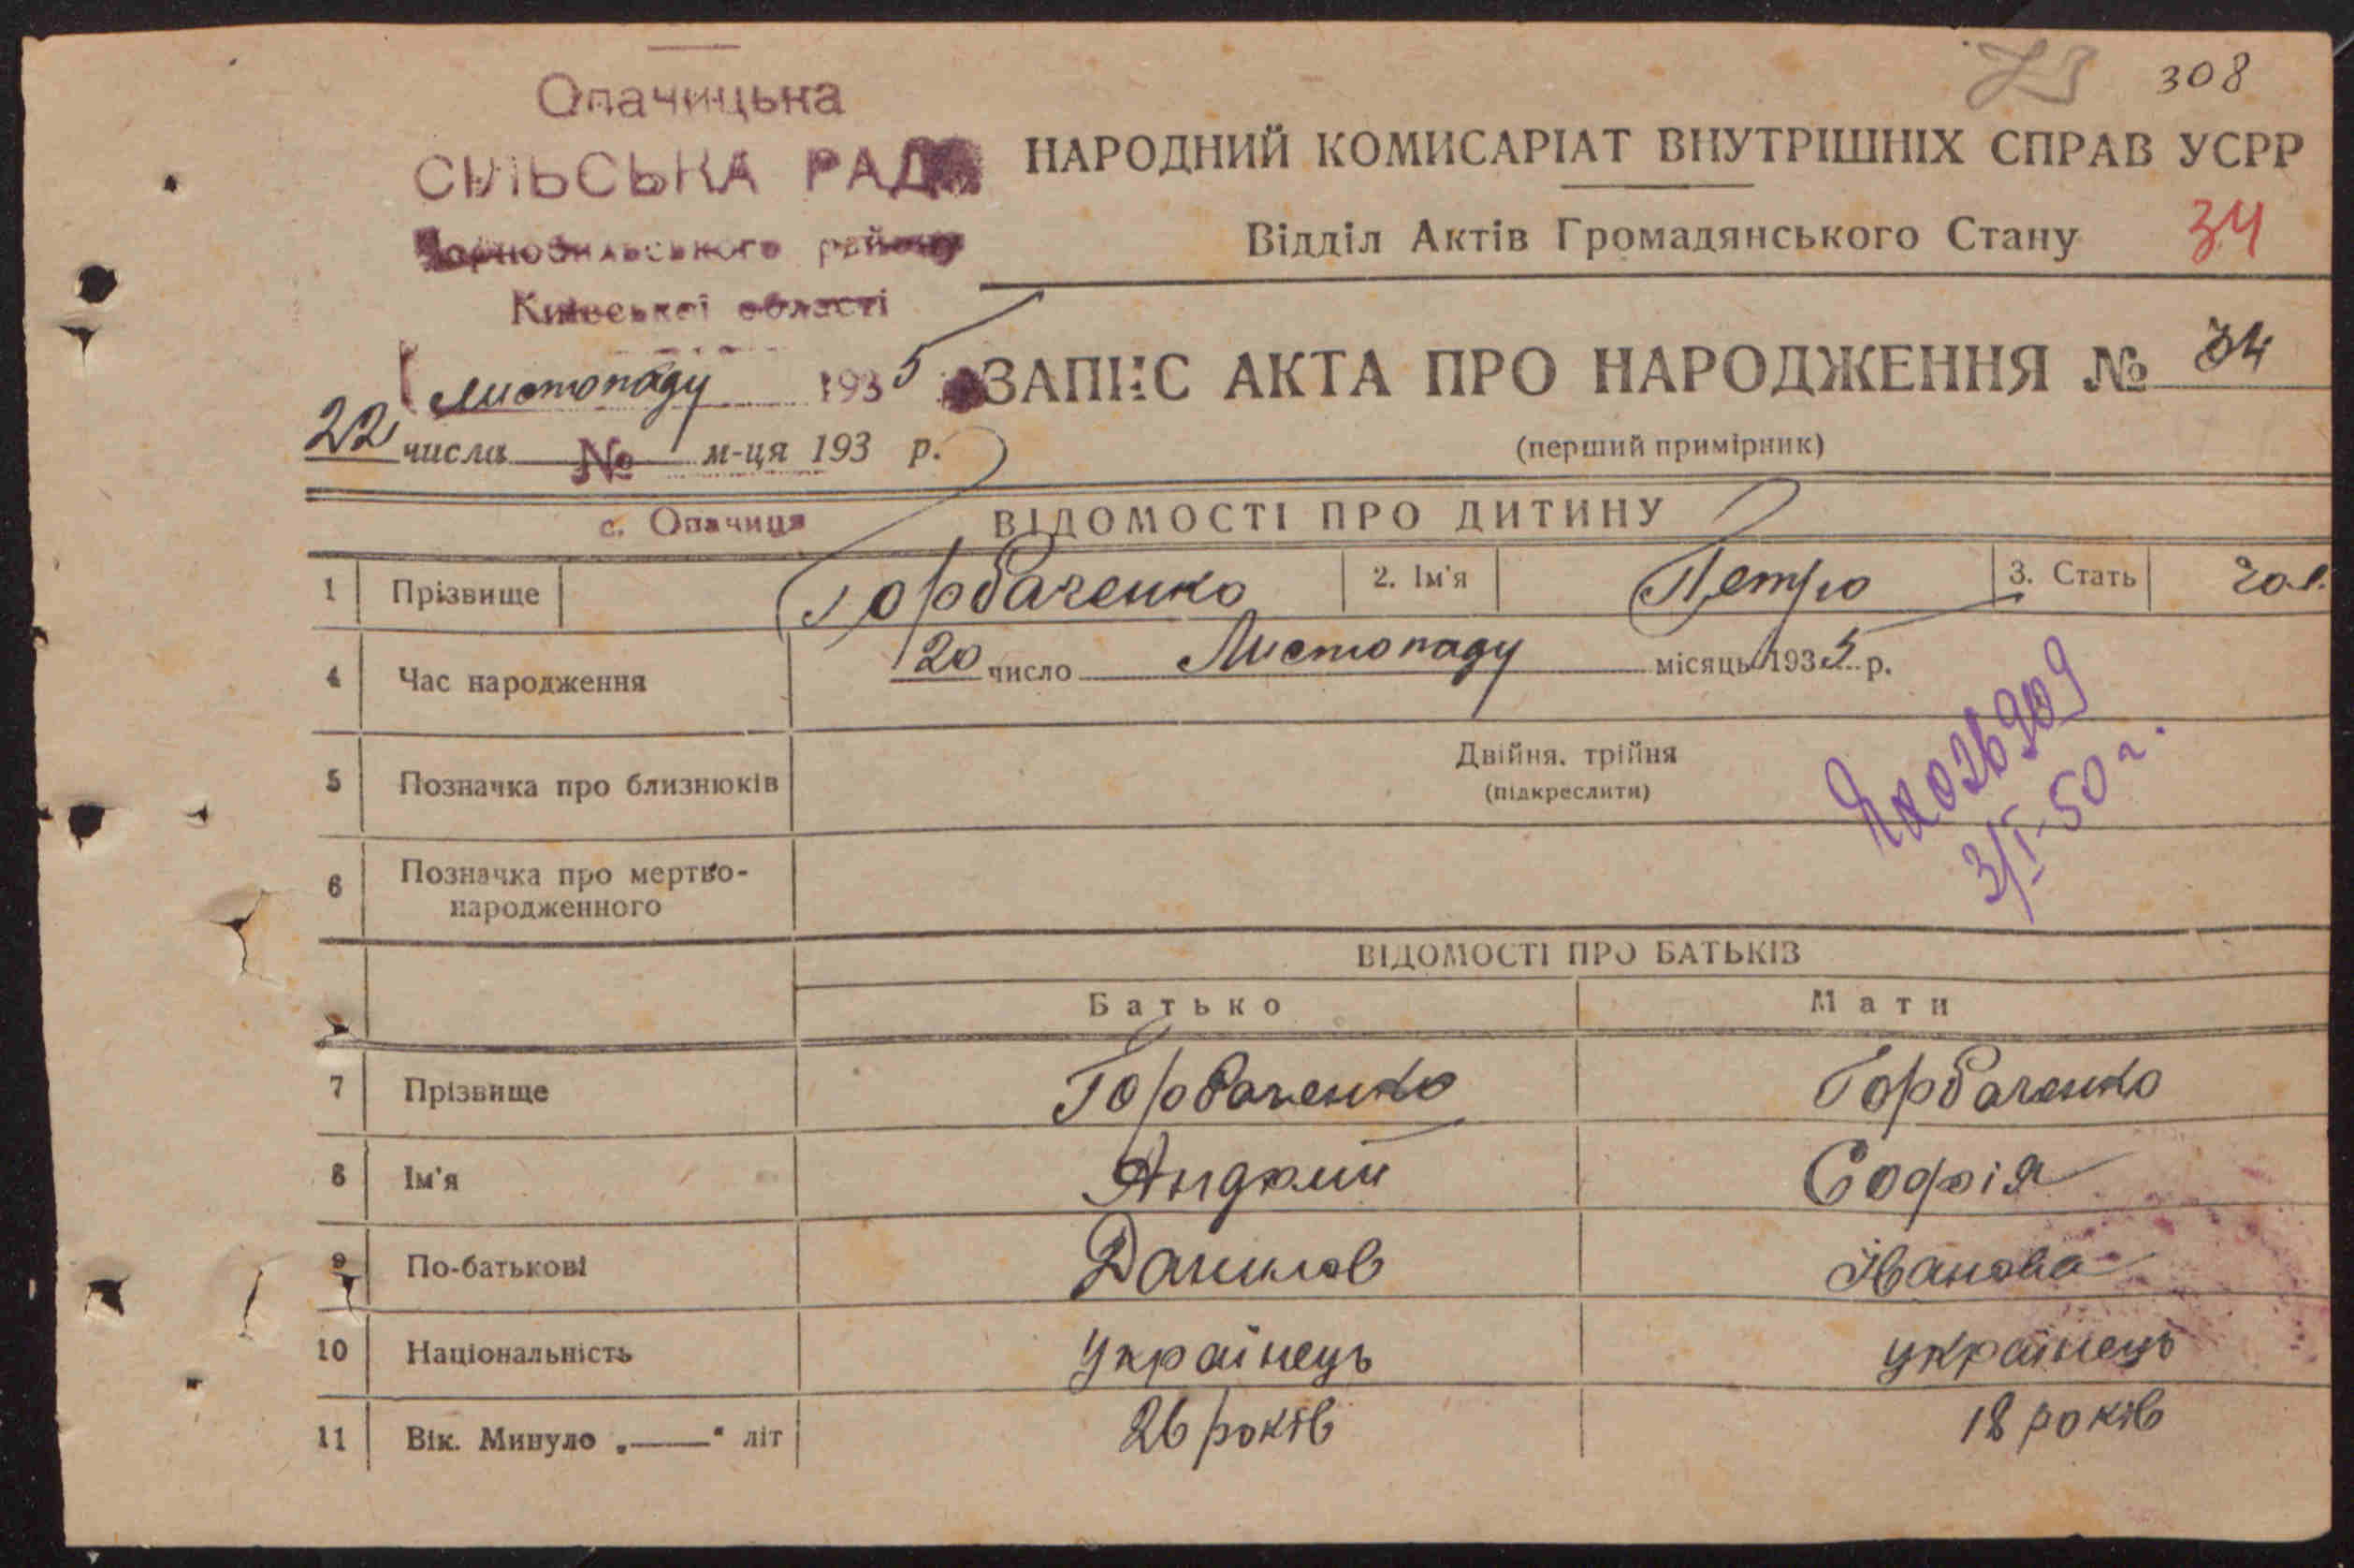 73 308
Опачицька
СІЛЬСЬКА РАДА
Чорнобильського району
Київської області
НАРОДНИЙ КОМИСАРІАТ ВНУТРІШНІХ СПРАВ УСРР
Відділ Актів Громадянського Стану 34
Листопаду 1935
ЗАПИС АКТА ПРО НАРОДЖЕННЯ № 34
22 числа № м-ця 193 р.
(перший примірник)
с. Опачиця
ВІДОМОСТІ ПРО ДИТИНУ
1 Прізвище Горбаченко 2. Ім'я Петро 3. Стать чол.
4 Час народження 20 число Листопаду місяць 1935 р.
5 Позначка про близнюків Двійня, трійня
(підкреслити)
026909
3/I-50 г.
6 Позначка про мертво-
народженного
ВІДОМОСТІ ПРО БАТЬКІВ
Батько Мати
7 Прізвище Горбаченко Горбаченко
8 Ім'я Софія
9 По-батькові Данилов Іванова
10 Національність Українець українець
11 Вік. Минуло „——“ літ 26 років 18 років